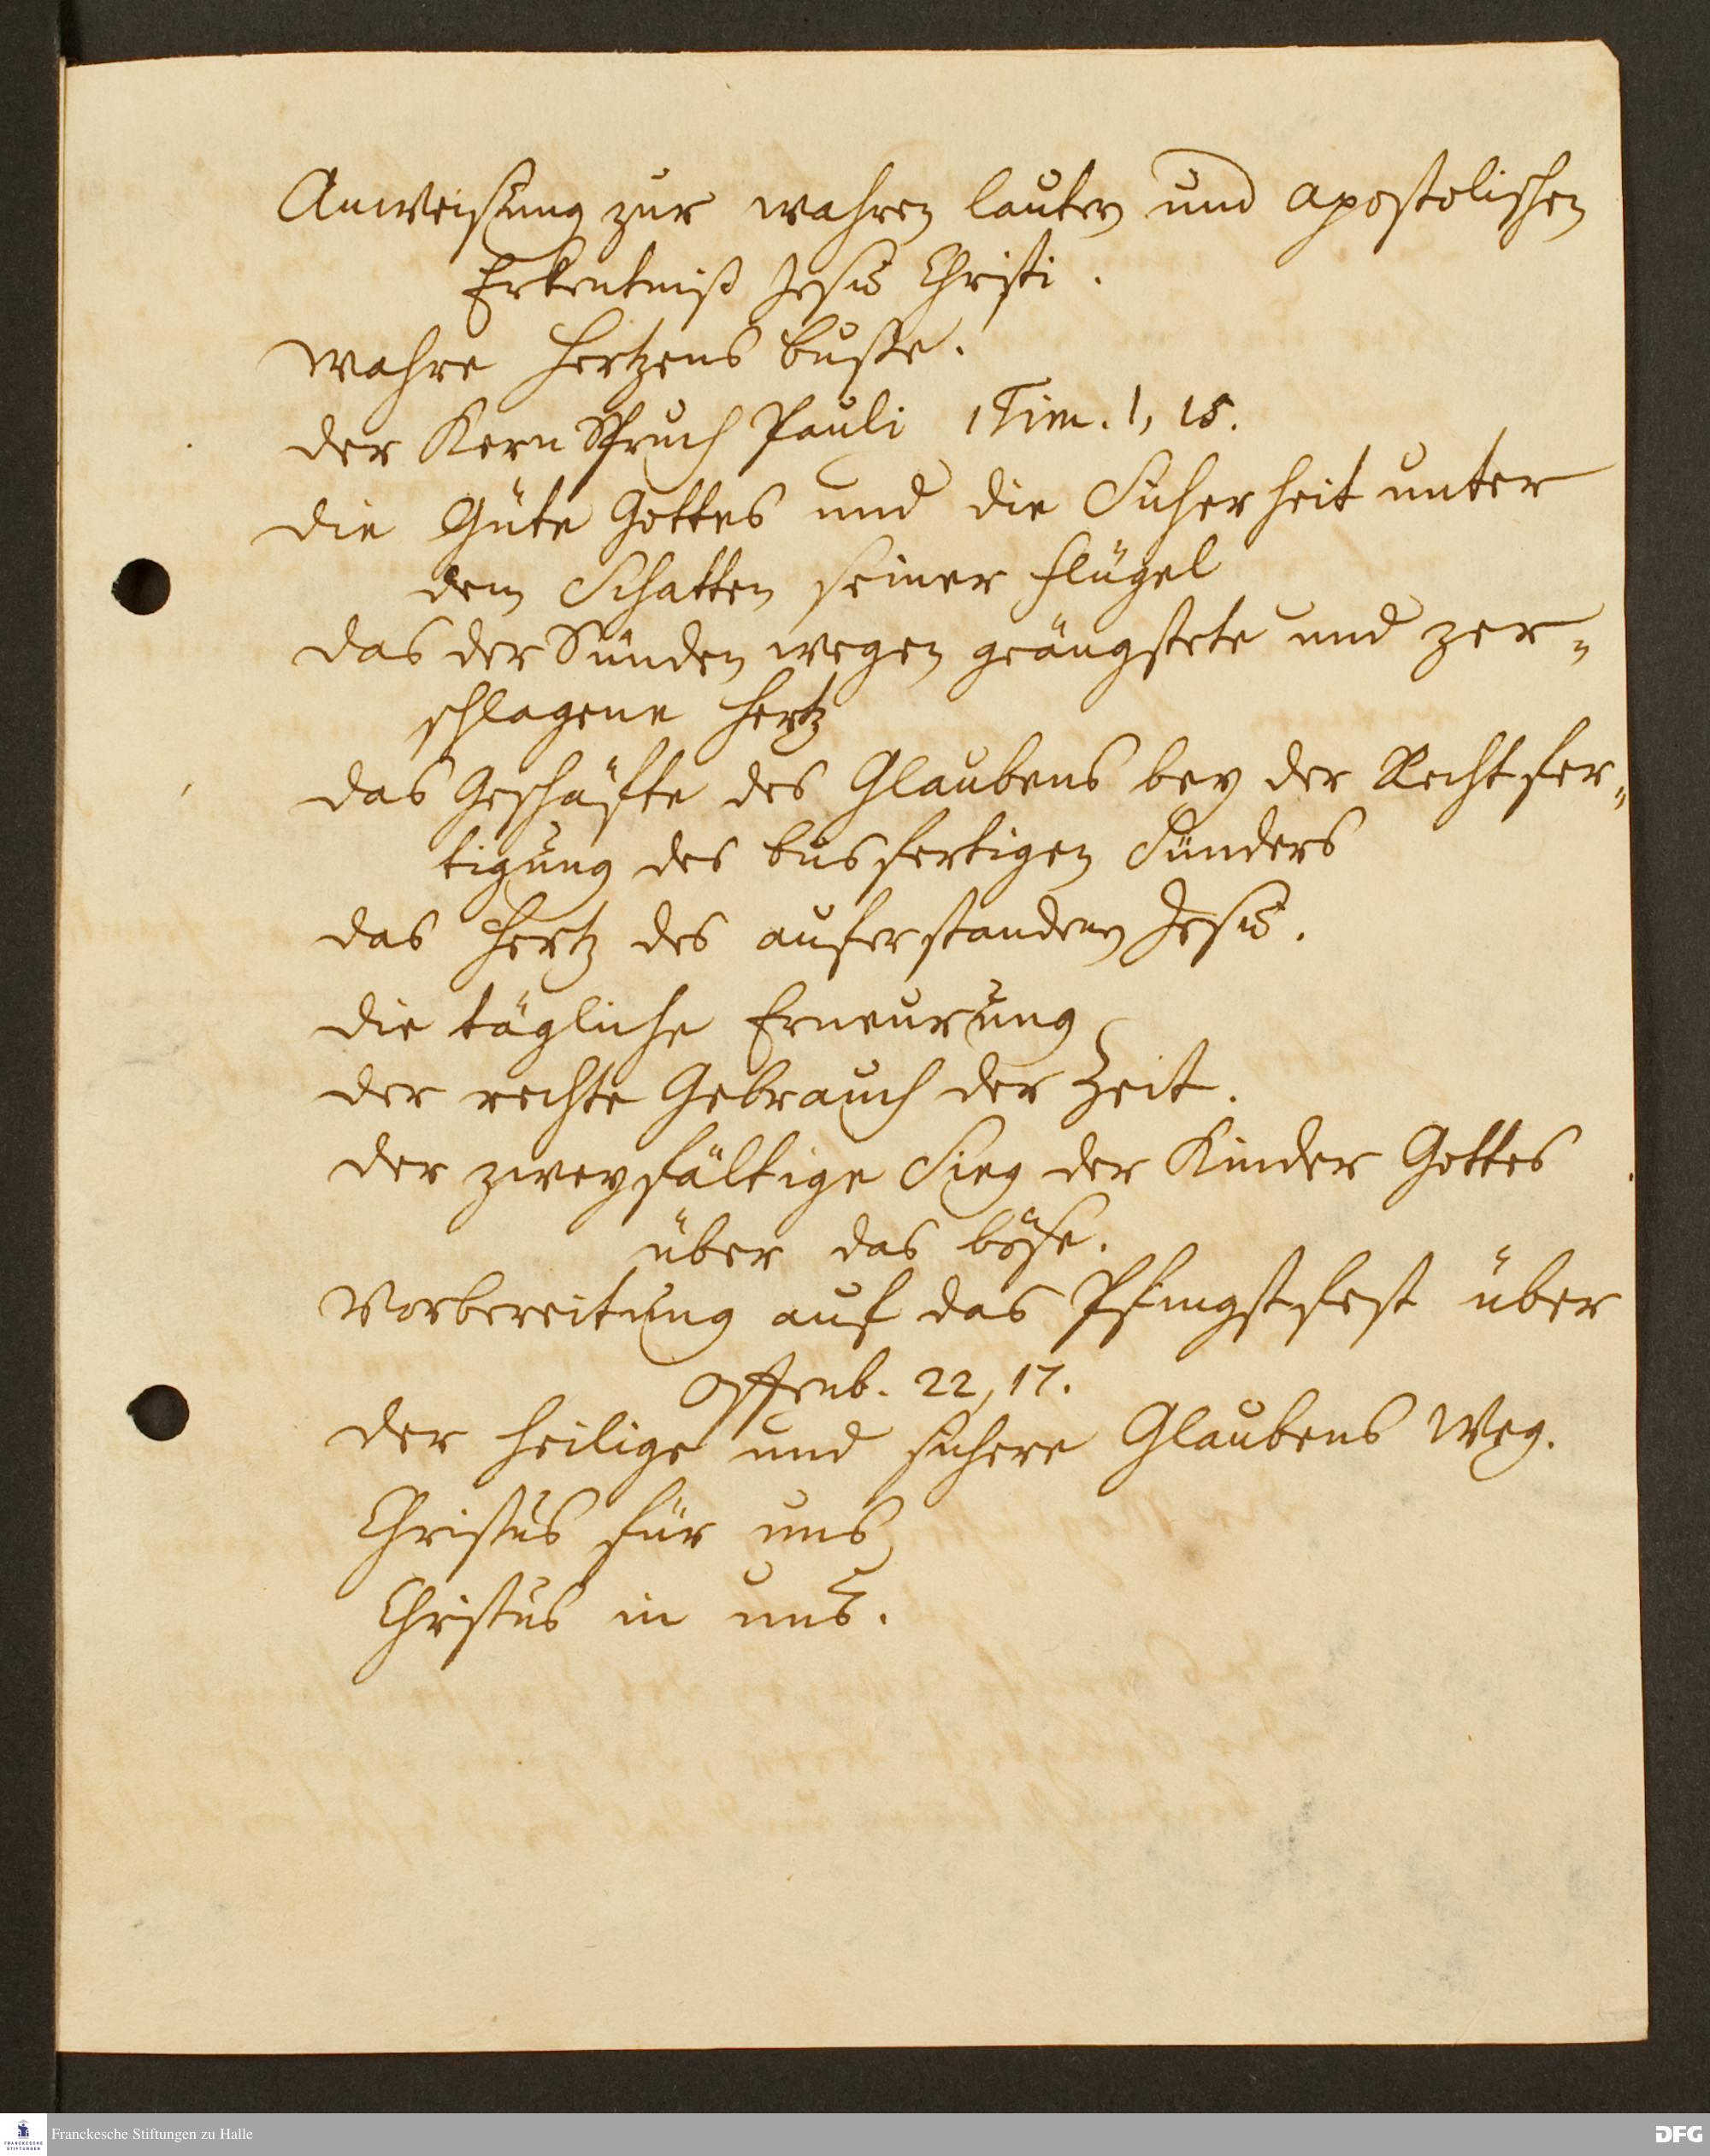 Anweisung zur wahren lautern und apostolischen
Erkentniß Jesu Christi.
wahre Hertzens busse.
der Kern Spruch Pauli 1 Tim. 1, 15.
die Güte Gottes und die Sicherheit unter
dem Schatten seiner Flügel
das der Sünden wegen geängstete und zer„
schlagene Hertz
das Geschäfte des Glaubens bey der Rechtfer„
tigung des busfertigen Sünders
das Hertz des auferstandenen Jesu.
die tägliche Erneurung
der rechte Gebrauch der Zeit.
der zweyfältige Sieg der Kinder Gottes
über das böse.
Vorbereitung auf das Pfingstfest über
Offenb. 22, 17.
der heilige und sichere Glaubens Weg.
Christus für uns
Christus in uns.
FRANCKESCHE
STIFTUNGEN
Franckesche Stiftungen zu Halle
DFG